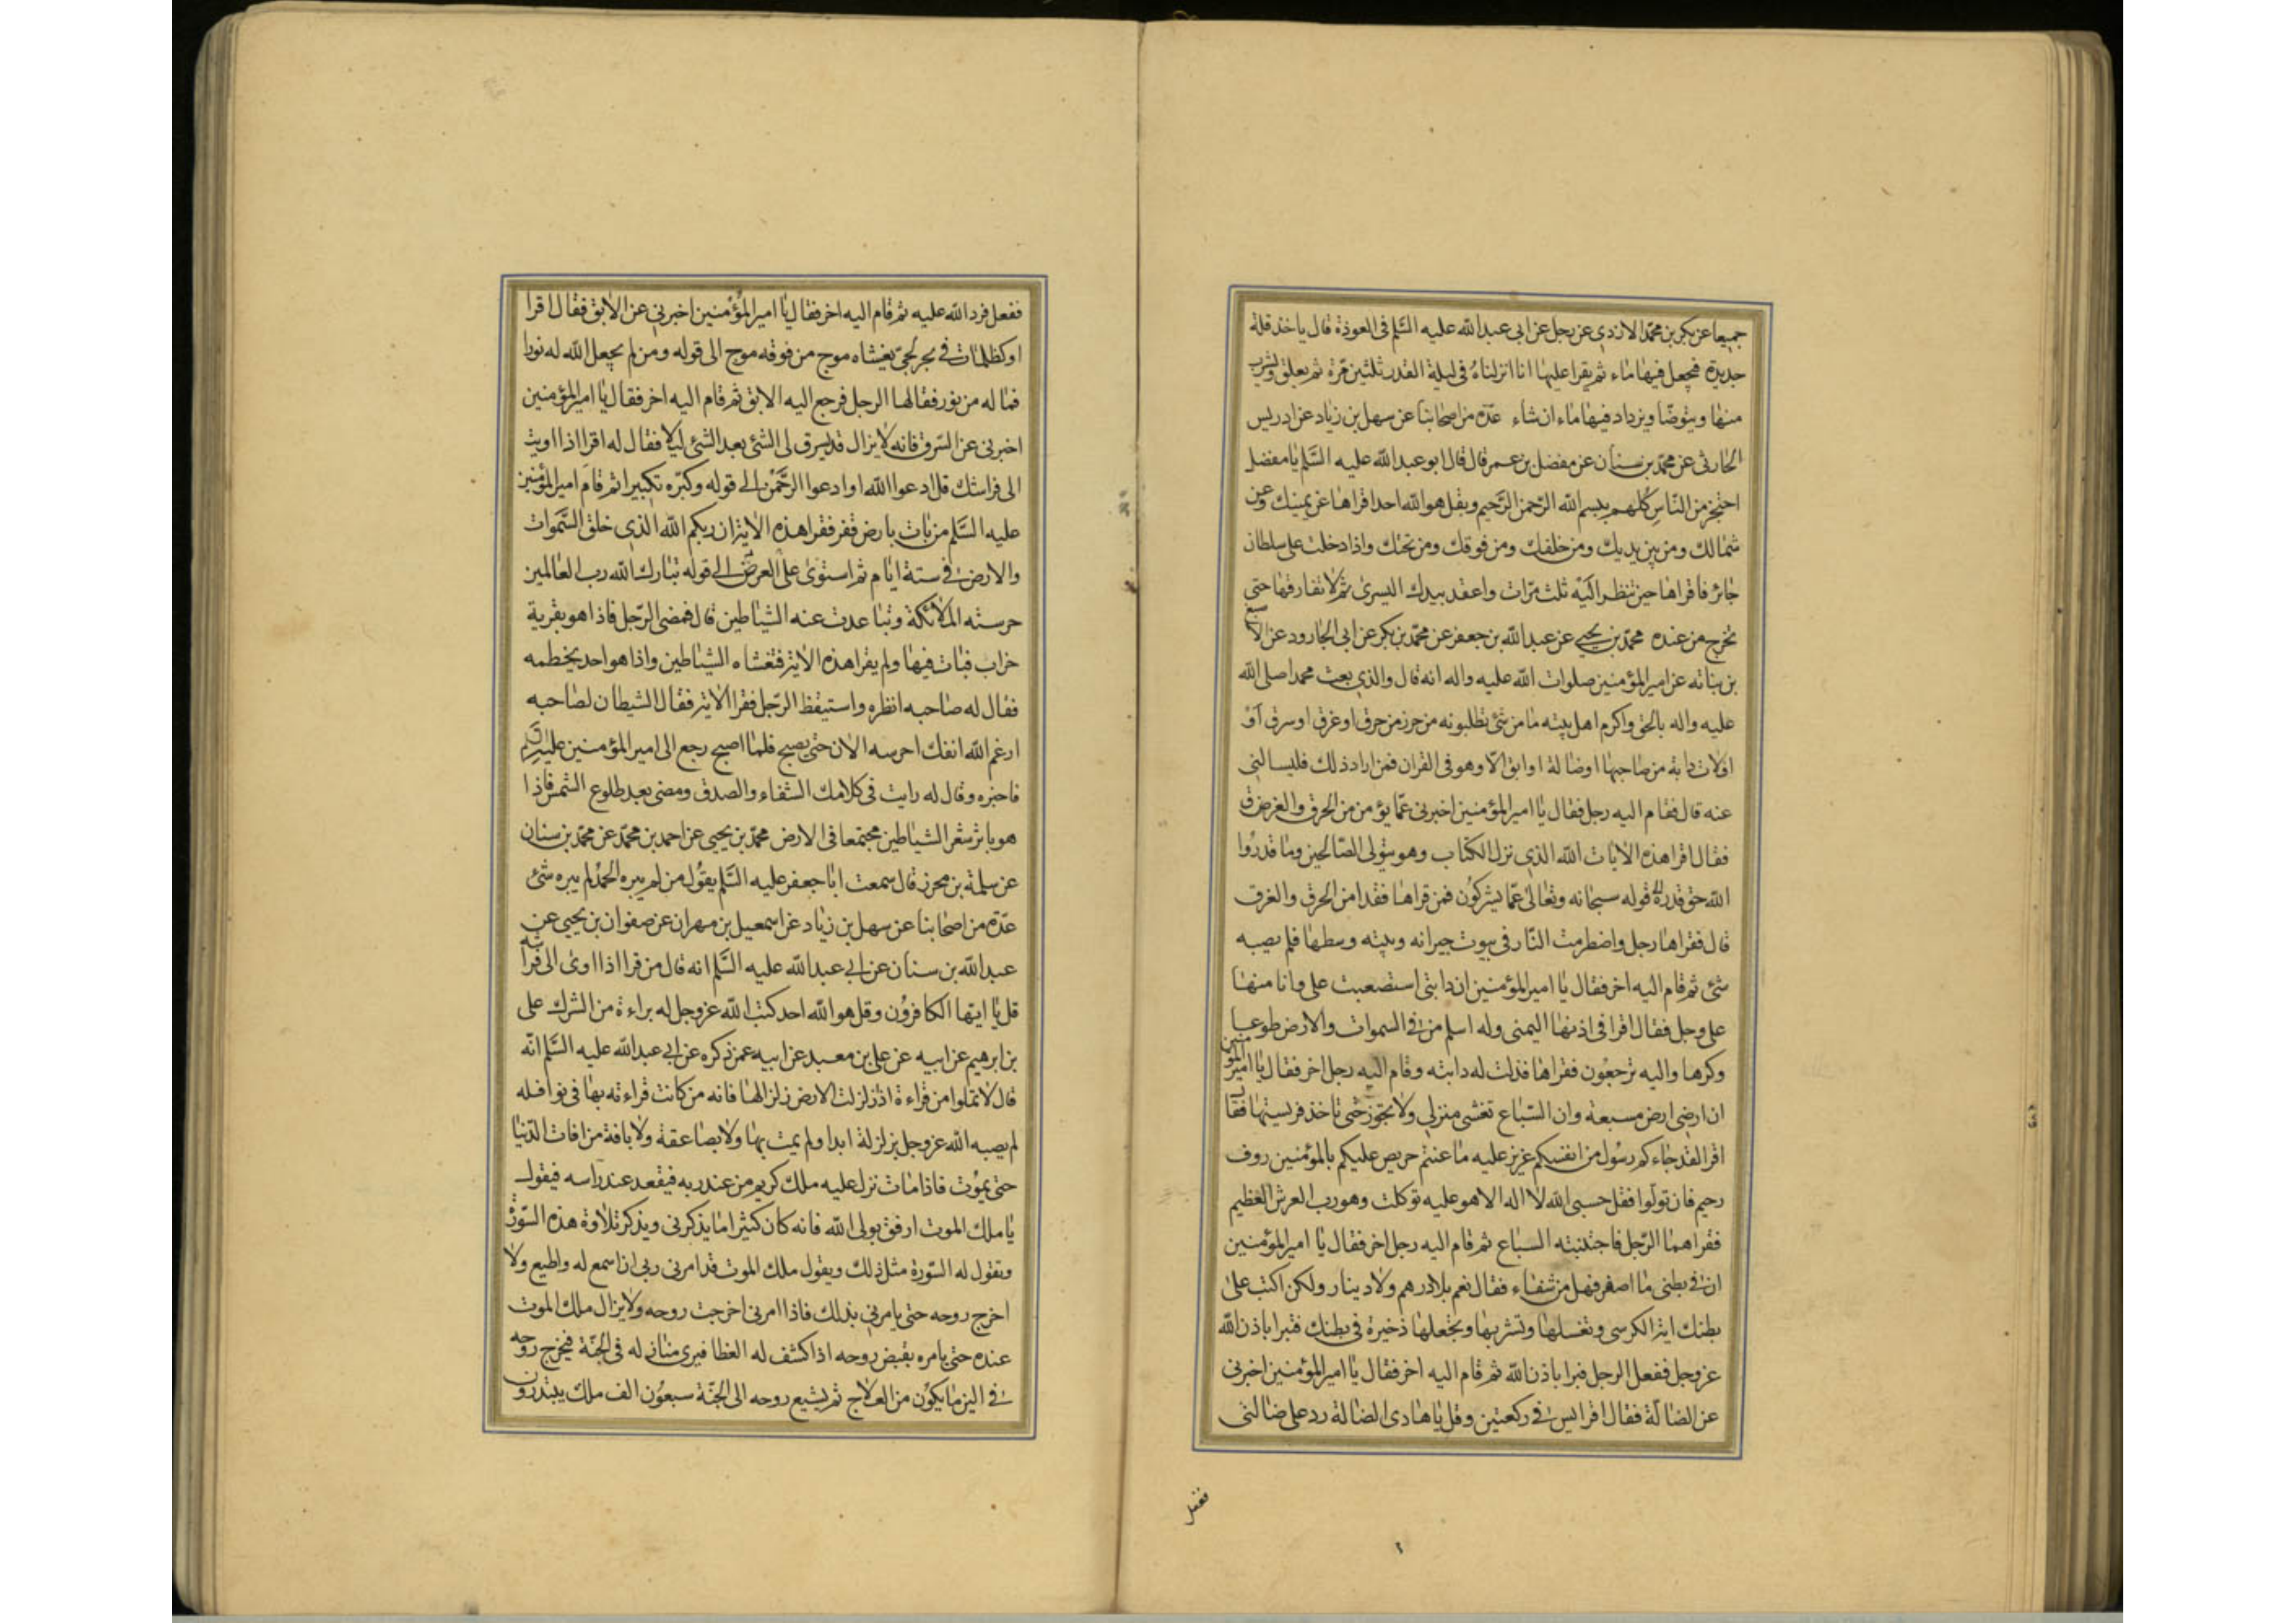 جميعا عن بكر بن محمد الازدي عن رجل عن ابى عبد الله عليه السّلم فى العوذة قال ياخذ قلة
جديدة فيجعل فيها ماء ثم يقرا عليها انا انزلناه فى ليلة القدر ثلثين مرّة ثم يعلق ويشرب
منها ويتوضّا ويزداد فيها ماء ان شاء عدّة من اصحابنا عن سهل بن زياد عن ادريس
الحارثى عن محمّد بن سنان عن مفضل بن عمر قال قال ابو عبد الله عليه السّلم يا مفضل
احتجز من النّاس كلهم ببسم الله الرّحمن الرّحيم وبقل هو الله احد اقراها عن يمينك وعن
شمالك ومن بين يديك ومن خلفك ومن فوقك ومن تحتك واذا دخلت على سلطان
جائر فاقراها حين تنظر اليه ثلث مرّات واعقد بيدك اليسرى ثم لا تفارقها حتى
تخرج من عنده محمّد بن يحيى عن عبد الله بن جعفر عن محمّد بن بكر عن ابى الجارود عن الاصبغ
بن نباته عن امير المؤمنين صلوات الله عليه واله انه قال والذي بعث محمدا صلى الله
عليه واله بالحق واكرم اهل بيته ما من شئ تطلبونه من حرز من حرق او غرق او سرق او
افلات دابة من صاحبها او ضالة او ابق الّا وهو فى القران فمن اراد ذلك فليسالنى
عنه قال فقام اليه رجل فقال يا امير المؤمنين اخبرنى عمّا يؤمن من الحرق والغرق
فقال اقرا هذه الايات الله الذي نزل الكتاب وهو يتولى الصّالحين وما قدروا
الله حق قدره الى قوله سبحانه وتعالى عمّا يشركون فمن قراها فقد امن الحرق والغرق
قال فقراها رجل واضطرمت النّار فى بيوت جيرانه وبيته وسطها فلم يصبه
شئ ثم قام اليه اخر فقال يا امير المؤمنين ان دابتى استصعبت على وانا منها
على وجل فقال اقرا فى اذنها اليمنى وله اسلم من فى السموات والارض طوعا
وكرها واليه ترجعون فقراها فذلت له دابته وقام اليه رجل اخر فقال يا امير المؤمنين
ان ارضى ارض مسبعة وان السّباع تغشى منزلي ولا تجوز حتى تاخذ فريستها فقال
اقرا لقد جاءكم رسول من انفسكم عزيز عليه ما عنتم حريص عليكم بالمؤمنين روف
رحيم فان تولوا فقل حسبى الله لا اله الا هو عليه توكلت وهو رب العرش العظيم
فقراهما الرّجل فاجتنبته السباع ثم قام اليه رجل اخر فقال يا امير المؤمنين
ان فى بطنى ما اصفر فهل من شفاء فقال نعم بلا درهم ولا دينار ولكن اكتب على
بطنك اية الكرسى وتغسلها وتشربها وتجعلها ذخيرة فى بطنك فتبرا باذن الله
عزوجل ففعل الرجل فبرا باذن الله ثم قام اليه اخر فقال يا امير المؤمنين اخبرنى
عن الضالّة فقال اقرا يس فى ركعتين وقل يا هادى الضالة رد على ضالتى
ففعل
ففعل فرد الله عليه ثم قام اليه اخر فقال يا امير المؤمنين اخبرني عن الابق فقال اقرا
او كظلمات في بحر لجىّ يغشاه موج من فوقه موج الى قوله ومن لم يجعل الله له نورا
فما له من نور فقالها الرجل فرجع اليه الابق ثم قام اليه اخر فقال يا امير المؤمنين
اخبرنى عن السّرق فانه لا يزال قد يسرق لى الشئ بعد الشئ ليلا فقال له اقرا اذا اويت
الى فراشك قل ادعوا الله او ادعوا الرّحمن الى قوله وكبّره تكبيرا ثم قام امير المؤمنين
عليه السّلم من بات بارض قفر فقرا هذه الاية ان ربكم الله الذي خلق السّموات
والارض في ستة ايّام ثم استوى على العرش الى قوله تبارك الله رب العالمين
حرسته الملائكة وتباعدت عنه الشياطين قال فمضى الرّجل فاذا هو بقرية
خراب فبات فيها ولم يقرا هذه الاية فتغشاه الشياطين واذا هو احد بخطمه
فقال له صاحبه انظره واستيقظ الرّجل فقرا الاية فقال الشيطان لصاحبه
ارغم الله انفك احرسه الان حتى يصبح فلما اصبح رجع الى امير المؤمنين عليه السلم
فاخبره وقال له رايت فى كلامك الشفاء والصدق ومضى بعد طلوع الشمس فاذا
هو باثر شعر الشياطين مجتمعا فى الارض محمّد بن يحيى عن احمد بن محمّد عن محمّد بن سنان
عن سلمة بن محرز قال سمعت ابا جعفر عليه السّلم يقول من لم يبره الحمد لم يبره شئ
عدّة من اصحابنا عن سهل بن زياد عن اسمعيل بن مهران عن صفوان بن يحيى عن
عبد الله بن سنان عن ابي عبد الله عليه السّلم انه قال من قرا اذا اوى الى فراشه
قل يا ايها الكافرون وقل هو الله احد كتب الله عزوجل له براءة من الشرك على
بن ابرهيم عن ابيه عن على بن معبد عن ابيه عمن ذكره عن ابي عبد الله عليه السّلم انّه
قال لا تملوا من قراءة اذا زلزلت الارض زلزالها فانه من كانت قراءته بها فى نوافله
لم يصبه الله عزوجل بزلزلة ابدا ولم يمت بها ولا بصاعقة ولا بافة من افات الدّنيا
حتى يموت فاذا مات نزل عليه ملك كريم من عند ربه فيقعد عند راسه فيقول
يا ملك الموت ارفق بولى الله فانه كان كثيرا ما يذكرنى ويذكر تلاوة هذه السّورة
وتقول له السّورة مثل ذلك ويقول ملك الموت قد امرنى ربى ان اسمع له واطيع ولا
اخرج روحه حتى يامرني بذلك فاذا امرنى اخرجت روحه ولا يزال ملك الموت
عنده حتى يامره بقبض روحه اذا كشف له الغطا فيرى منازله فى الجنّة فيخرج روحه
في الين ما يكون من العلاج ثم يشيع روحه الى الجنّة سبعون الف ملك يبتدرون